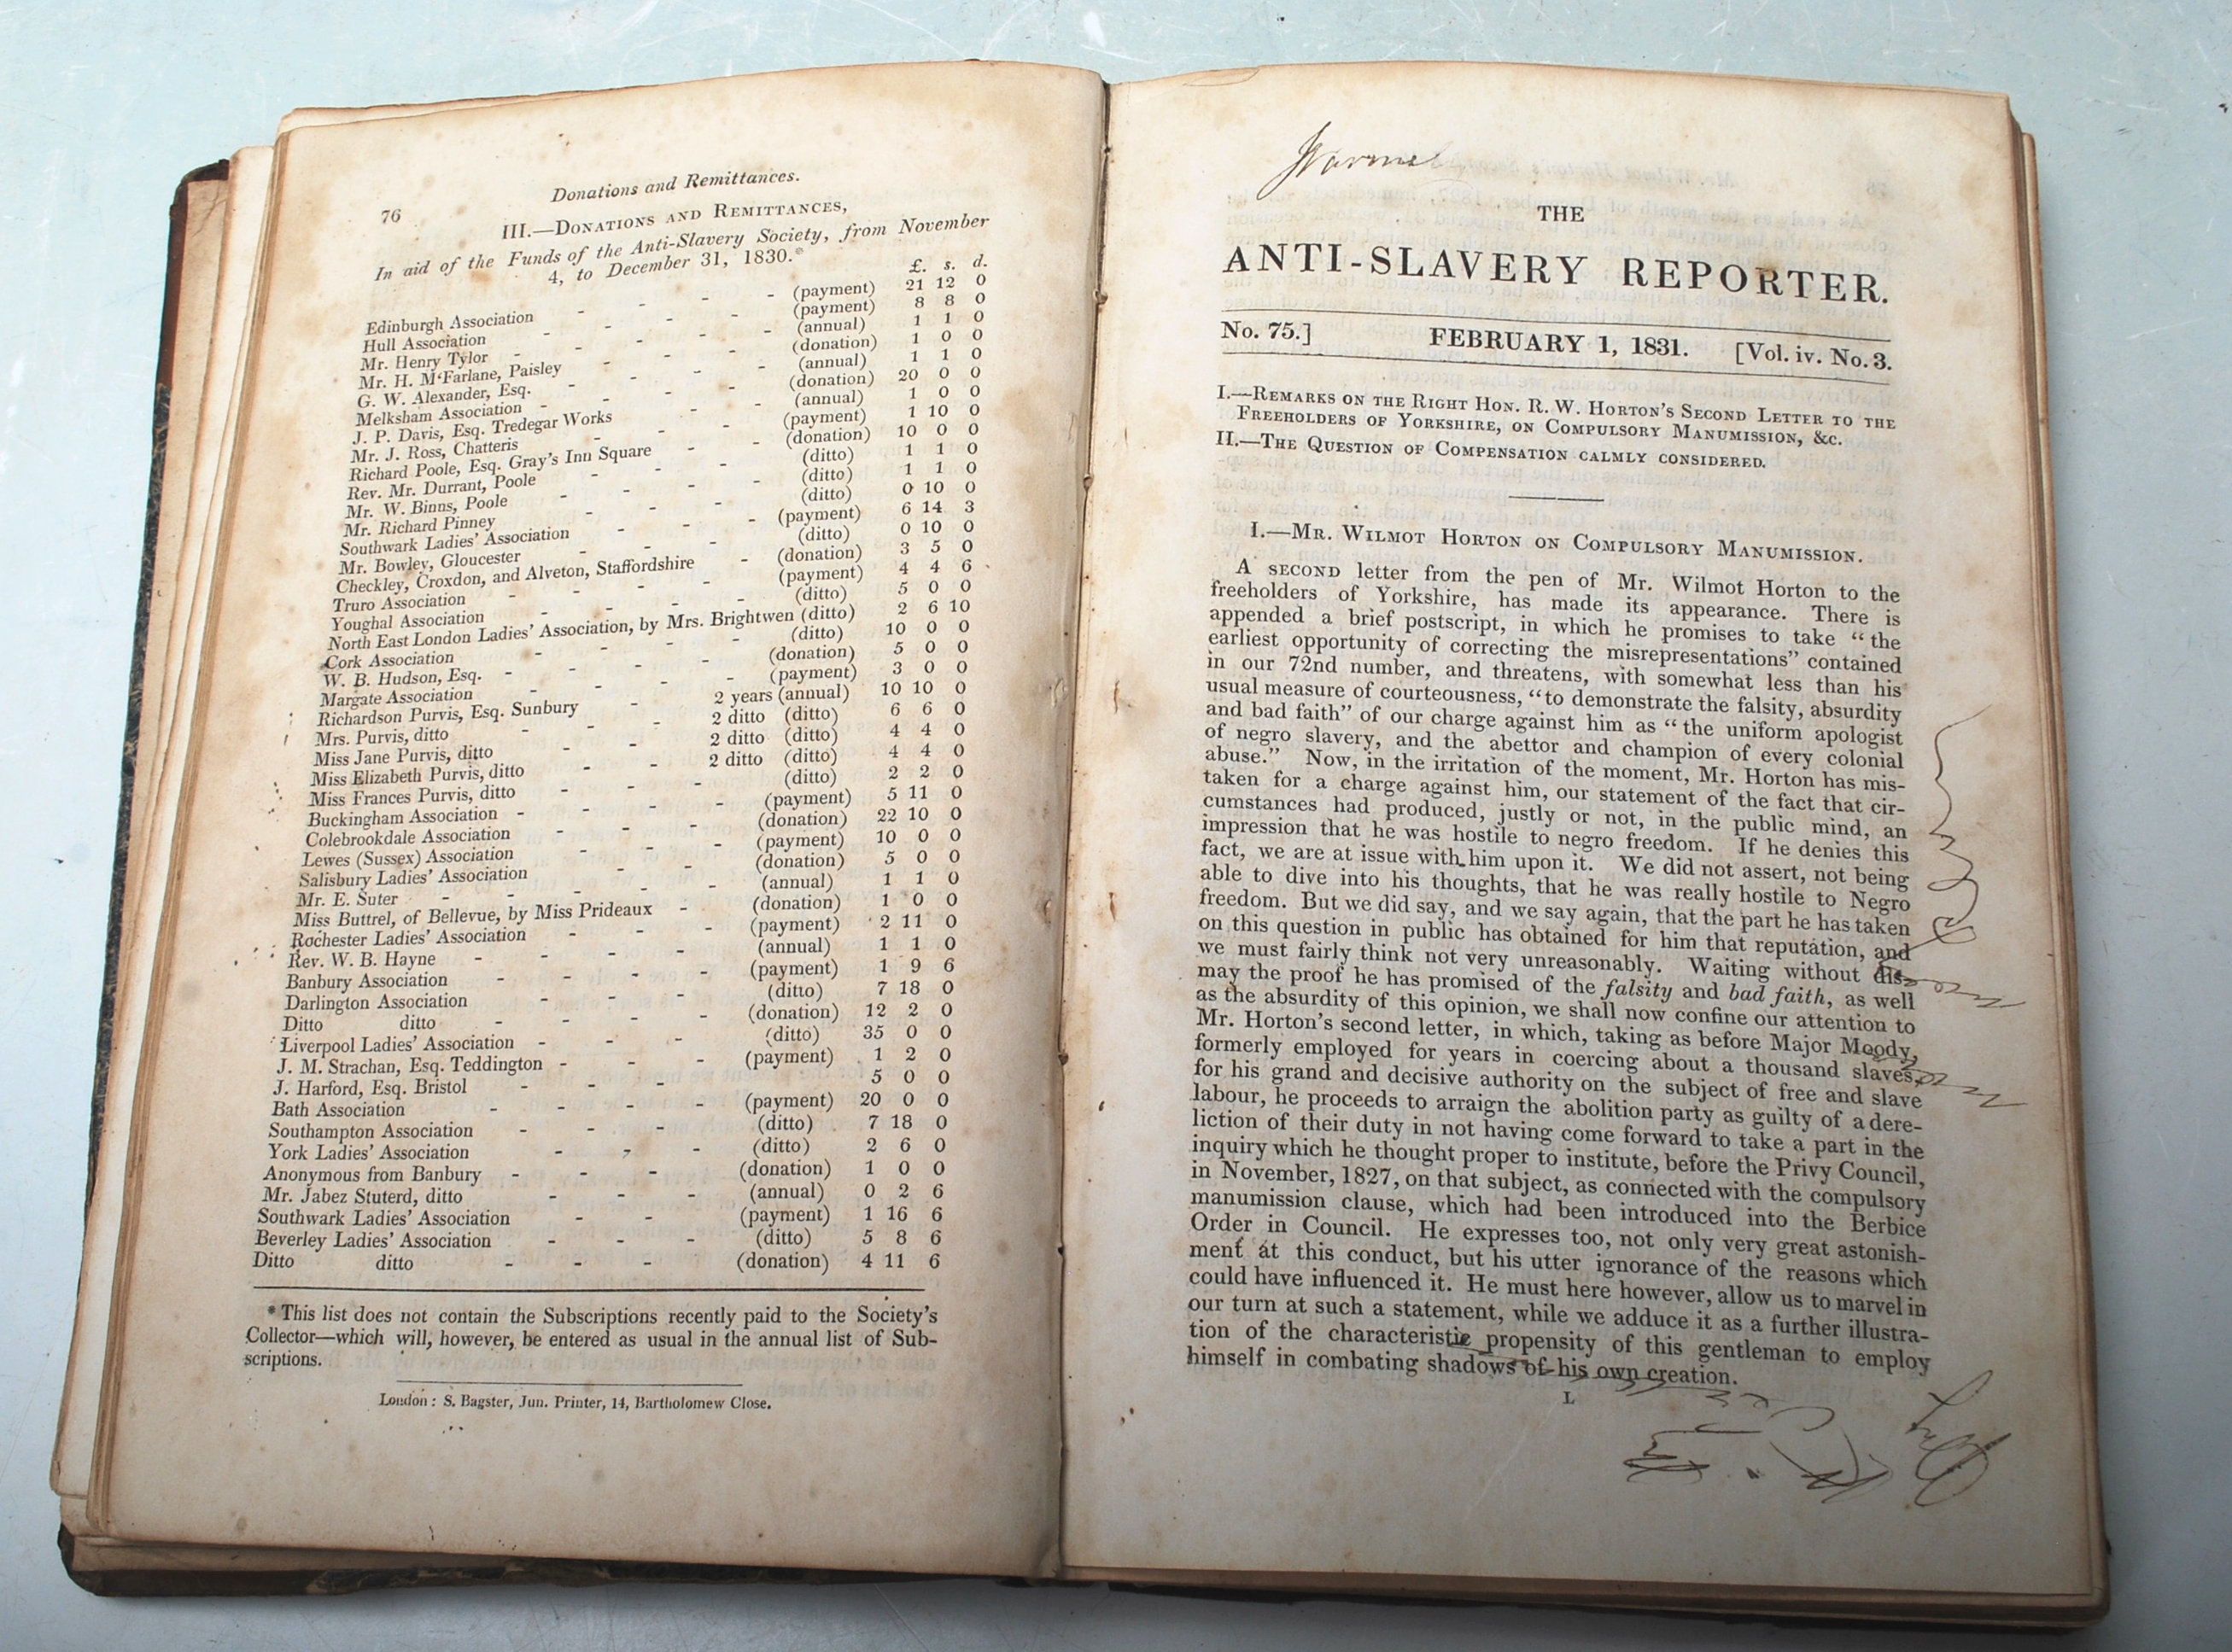 76
Donations and Remittances.
III.—DONATIONS AND REMITTANCES,
In aid of the Funds of the Anti-Slavery Society, from November
4, to December 31, 1830.*
£. s. d.
Edinburgh Association - - - (payment) 21 12 0
Hull Association - - - (payment) 8 8 0
Mr. Henry Tylor - - - (annual) 1 1 0
Mr. H. M‘Farlane, Paisley - - (donation) 1 0 0
G. W. Alexander, Esq. - - - (annual) 1 1 0
Melksham Association - - - (donation) 20 0 0
J. P. Davis, Esq. Tredegar Works - - (annual) 1 0 0
Mr. J. Ross, Chatteris - - - (payment) 1 10 0
Richard Poole, Esq. Gray's Inn Square - - (donation) 10 0 0
Rev. Mr. Durrant, Poole - - - (ditto) 1 1 0
Mr. W. Binns, Poole - - - (ditto) 1 1 0
Mr. Richard Pinney - - - (ditto) 0 10 0
Southwark Ladies' Association - - - (payment) 6 14 3
Mr. Bowley, Gloucester - - - (ditto) 0 10 0
Checkley, Croxdon, and Alveton, Staffordshire - (donation) 3 5 0
Truro Association - - - (payment) 4 4 6
Youghal Association - - - (ditto) 5 0 0
North East London Ladies' Association, by Mrs. Brightwen (ditto) 2 6 10
Cork Association - - - (ditto) 10 0 0
W. B. Hudson, Esq. - - - (donation) 5 0 0
Margate Association - - - (payment) 3 0 0
Richardson Purvis, Esq. Sunbury - 2 years (annual) 10 10 0
Mrs. Purvis, ditto - - 2 ditto (ditto) 6 6 0
Miss Jane Purvis, ditto - - 2 ditto (ditto) 4 4 0
Miss Elizabeth Purvis, ditto - - 2 ditto (ditto) 4 4 0
Miss Frances Purvis, ditto - - - (ditto) 2 2 0
Buckingham Association - - - - (payment) 5 11 0
Colebrookdale Association - - - (donation) 22 10 0
Lewes (Sussex) Association - - - (payment) 10 0 0
Salisbury Ladies' Association - - - (donation) 5 0 0
Mr. E. Suter - - - - - (annual) 1 1 0
Miss Buttrel, of Bellevue, by Miss Prideaux - (donation) 1 0 0
Rochester Ladies' Association - - - (payment) 2 11 0
Rev. W. B. Hayne - - - - (annual) 1 1 0
Banbury Association - - - - (payment) 1 9 6
Darlington Association - - - (ditto) 7 18 0
Ditto ditto - - - - (donation) 12 2 0
Liverpool Ladies' Association - - - (ditto) 35 0 0
J. M. Strachan, Esq. Teddington - - - (payment) 1 2 0
J. Harford, Esq. Bristol - - - 5 0 0
Bath Association - - - - (payment) 20 0 0
Southampton Association - - - (ditto) 7 18 0
York Ladies' Association - - - (ditto) 2 6 0
Anonymous from Banbury - - - (donation) 1 0 0
Mr. Jabez Stuterd, ditto - - - (annual) 0 2 6
Southwark Ladies' Association - - (payment) 1 16 6
Beverley Ladies' Association - - - (ditto) 5 8 6
Ditto ditto - - - (donation) 4 11 6
* This list does not contain the Subscriptions recently paid to the Society's
Collector—which will, however, be entered as usual in the annual list of Sub-
scriptions.
London: S. Bagster, Jun. Printer, 14, Bartholomew Close.
THE
ANTI-SLAVERY REPORTER.
No. 75.] FEBRUARY 1, 1831. [Vol. iv. No. 3.
I.—REMARKS ON THE RIGHT HON. R. W. HORTON'S SECOND LETTER TO THE
FREEHOLDERS OF YORKSHIRE, ON COMPULSORY MANUMISSION, &c.
II.—THE QUESTION OF COMPENSATION CALMLY CONSIDERED.
I.—MR. WILMOT HORTON ON COMPULSORY MANUMISSION.
A SECOND letter from the pen of Mr. Wilmot Horton to the
freeholders of Yorkshire, has made its appearance. There is
appended a brief postscript, in which he promises to take “the
earliest opportunity of correcting the misrepresentations” contained
in our 72nd number, and threatens, with somewhat less than his
usual measure of courteousness, “to demonstrate the falsity, absurdity
and bad faith” of our charge against him as “the uniform apologist
of negro slavery, and the abettor and champion of every colonial
abuse.” Now, in the irritation of the moment, Mr. Horton has mis-
taken for a charge against him, our statement of the fact that cir-
cumstances had produced, justly or not, in the public mind, an
impression that he was hostile to negro freedom. If he denies this
fact, we are at issue with him upon it. We did not assert, not being
able to dive into his thoughts, that he was really hostile to Negro
freedom. But we did say, and we say again, that the part he has taken
on this question in public has obtained for him that reputation, and
we must fairly think not very unreasonably. Waiting without dis-
may the proof he has promised of the falsity and bad faith, as well
as the absurdity of this opinion, we shall now confine our attention to
Mr. Horton's second letter, in which, taking as before Major Moody,
formerly employed for years in coercing about a thousand slaves,
for his grand and decisive authority on the subject of free and slave
labour, he proceeds to arraign the abolition party as guilty of a dere-
liction of their duty in not having come forward to take a part in the
inquiry which he thought proper to institute, before the Privy Council,
in November, 1827, on that subject, as connected with the compulsory
manumission clause, which had been introduced into the Berbice
Order in Council. He expresses too, not only very great astonish-
ment at this conduct, but his utter ignorance of the reasons which
could have influenced it. He must here however, allow us to marvel in
our turn at such a statement, while we adduce it as a further illustra-
tion of the characteristic propensity of this gentleman to employ
himself in combating shadows of his own creation.
L